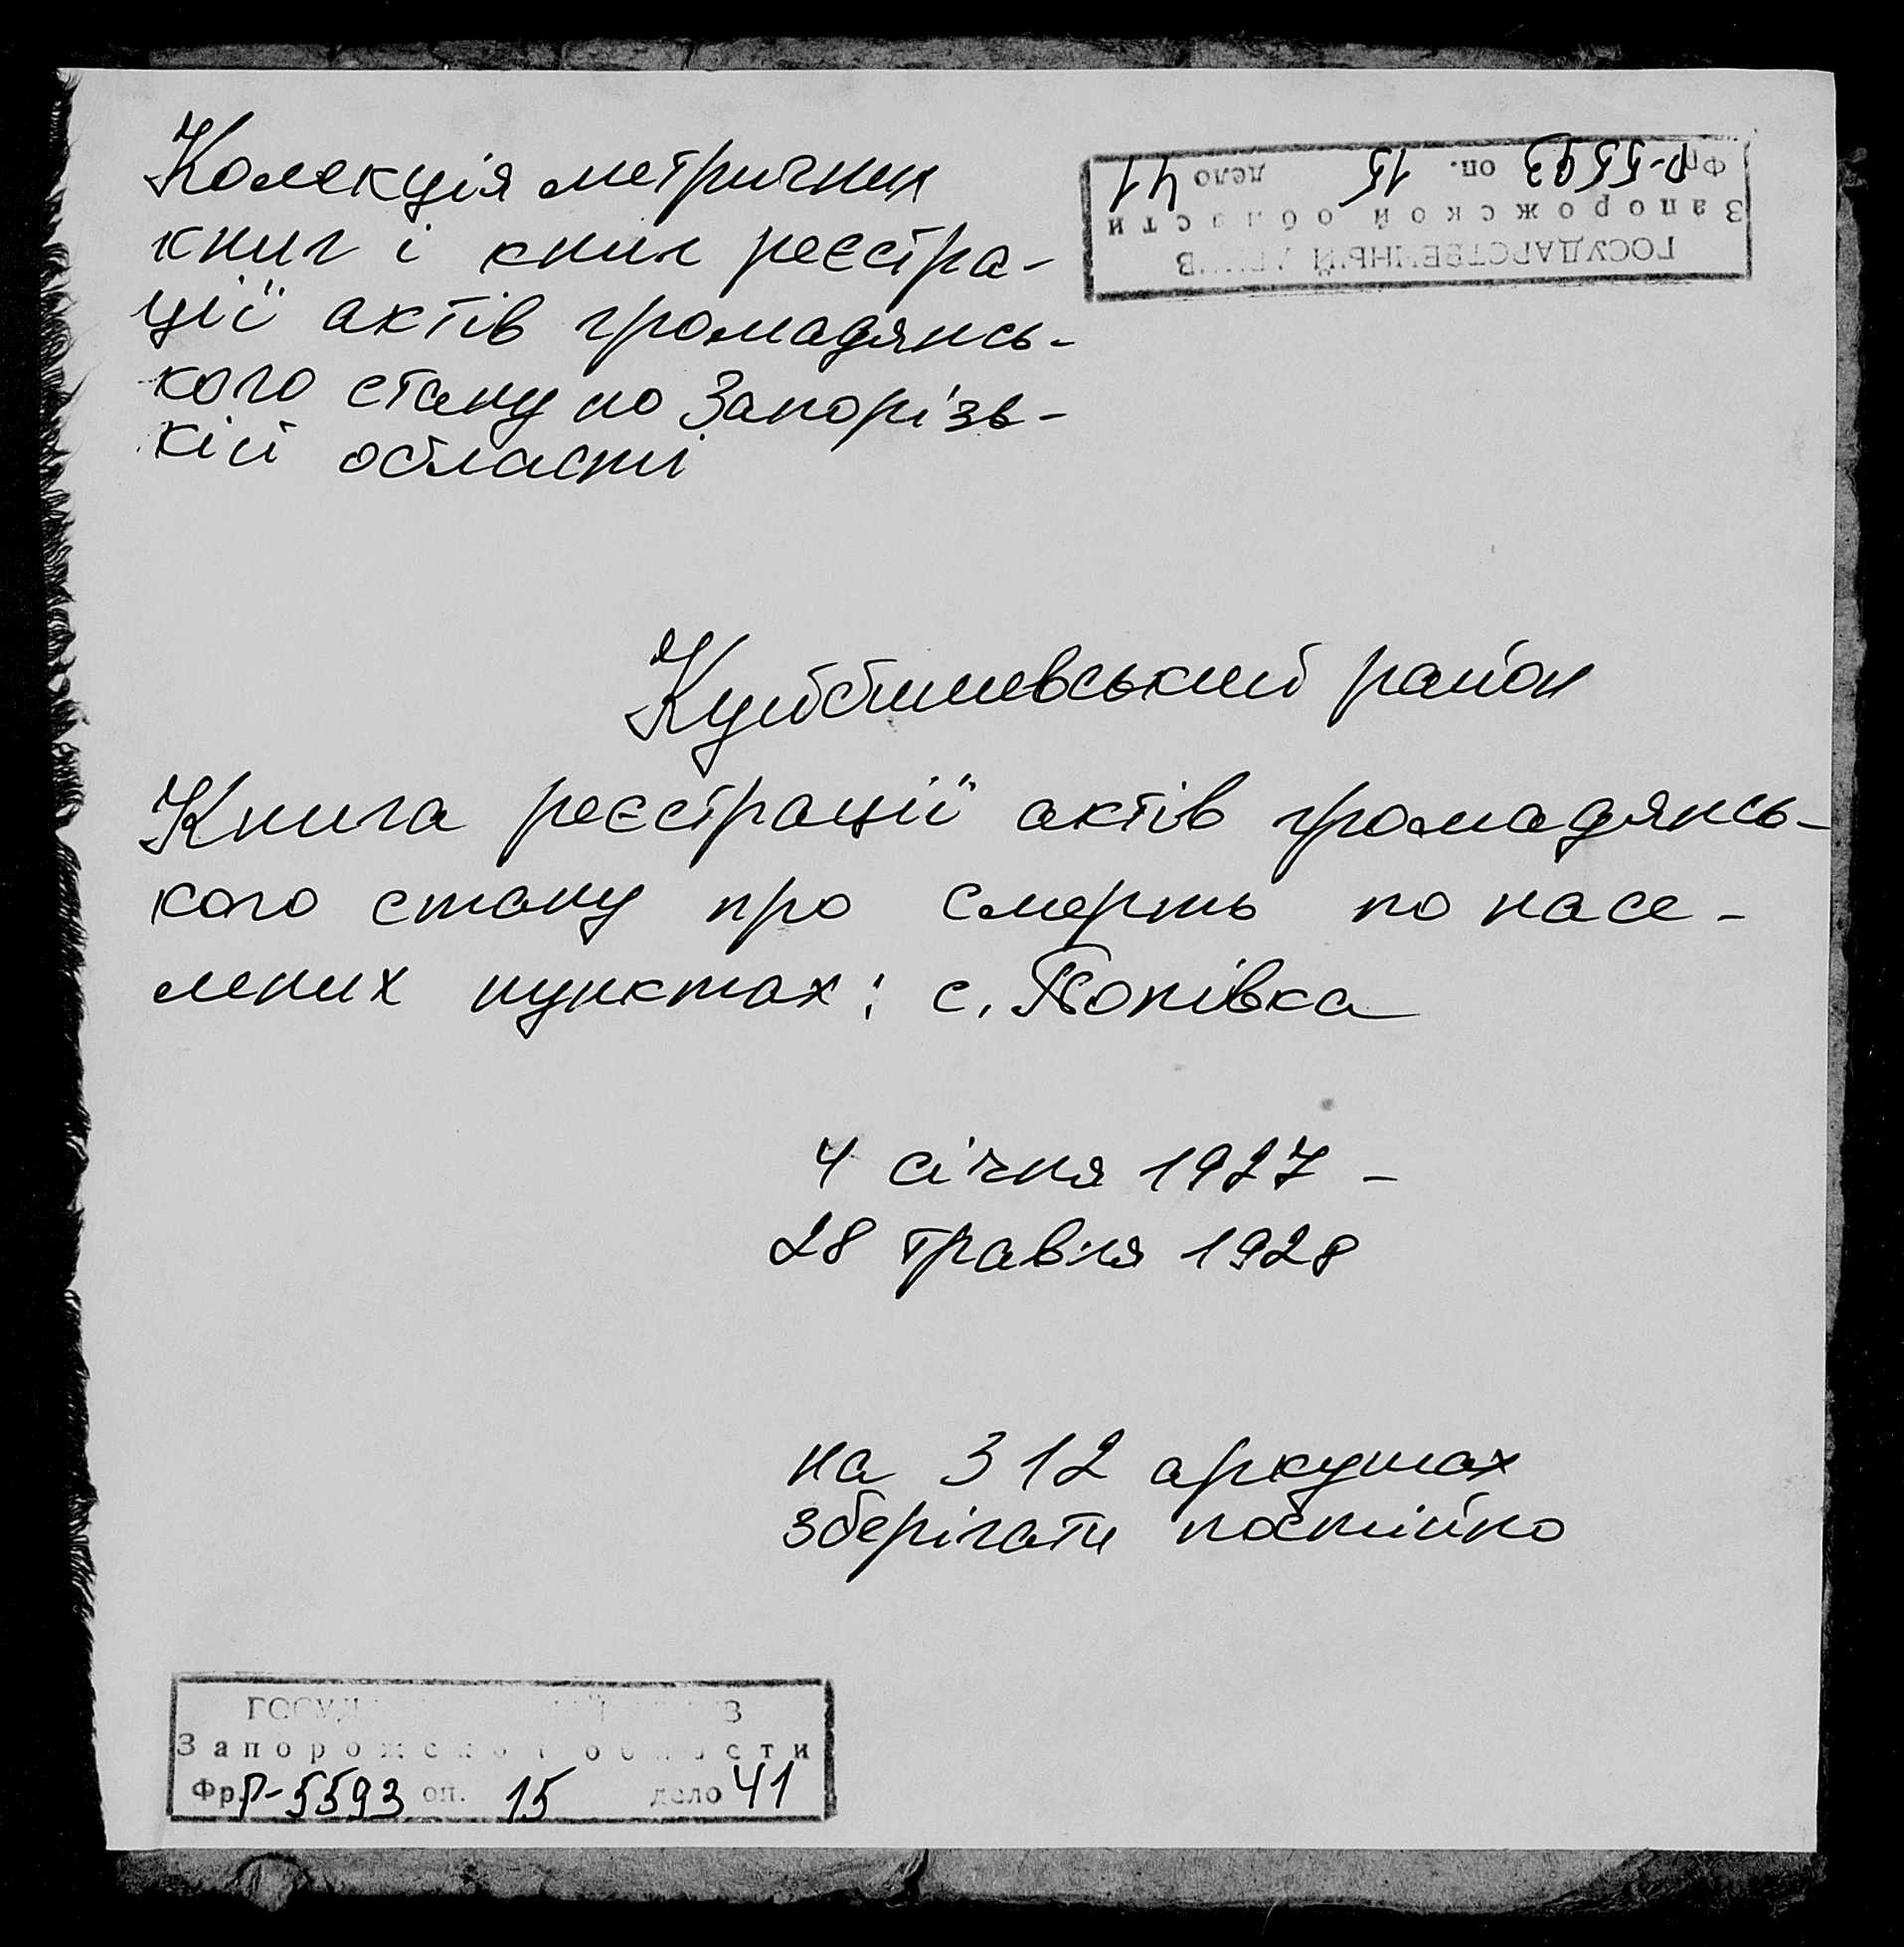 Колекція метричних
книг і книг реєстра-
ції актів громадянсь-
кого стану по Запорізь-
кій області
ГОСУДАРСТВЕННЫЙ АРХИВ
Запорожской области
Фр. Р-5593 оп. 15 дело 41
Куйбишевський район
Книга реєстрації актів громадянсь-
кого стану про смерть по насе-
лених пунктах: с. Попівка
4 січня 1927 -
28 травня 1928
на 312 аркушах
зберігати постійно
ГОСУДАРСТВЕННЫЙ АРХИВ
Запорожской области
Фр. Р-5593 оп. 15 дело 41